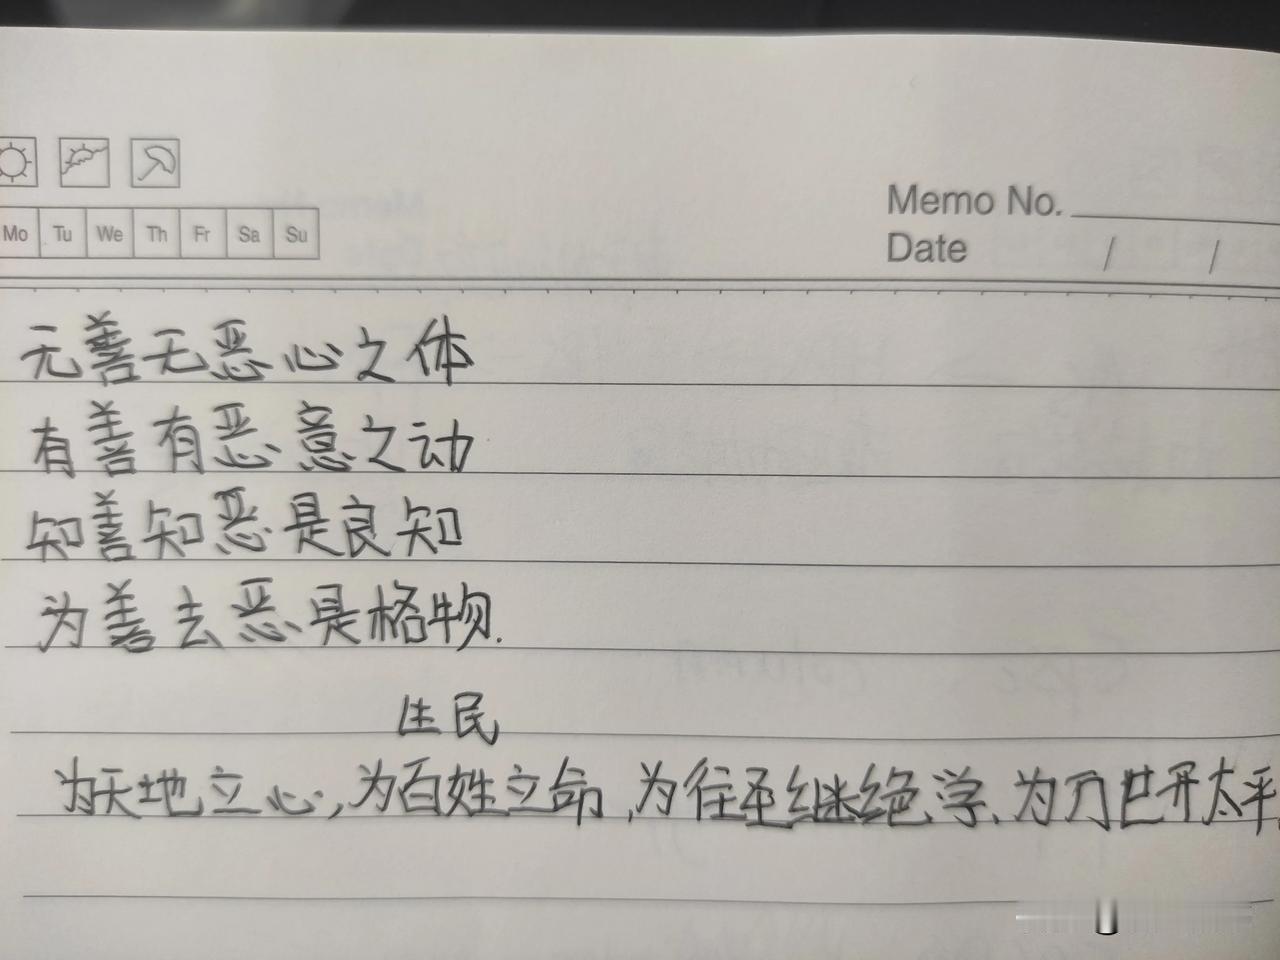 Memo No.
Mo Tu We Th Fr Sa Su
Date / /
无善无恶心之体
有善有恶意之动
知善知恶是良知
为善去恶是格物.
生民
为天地立心,为百姓立命,为往圣继绝学、为万世开太平。